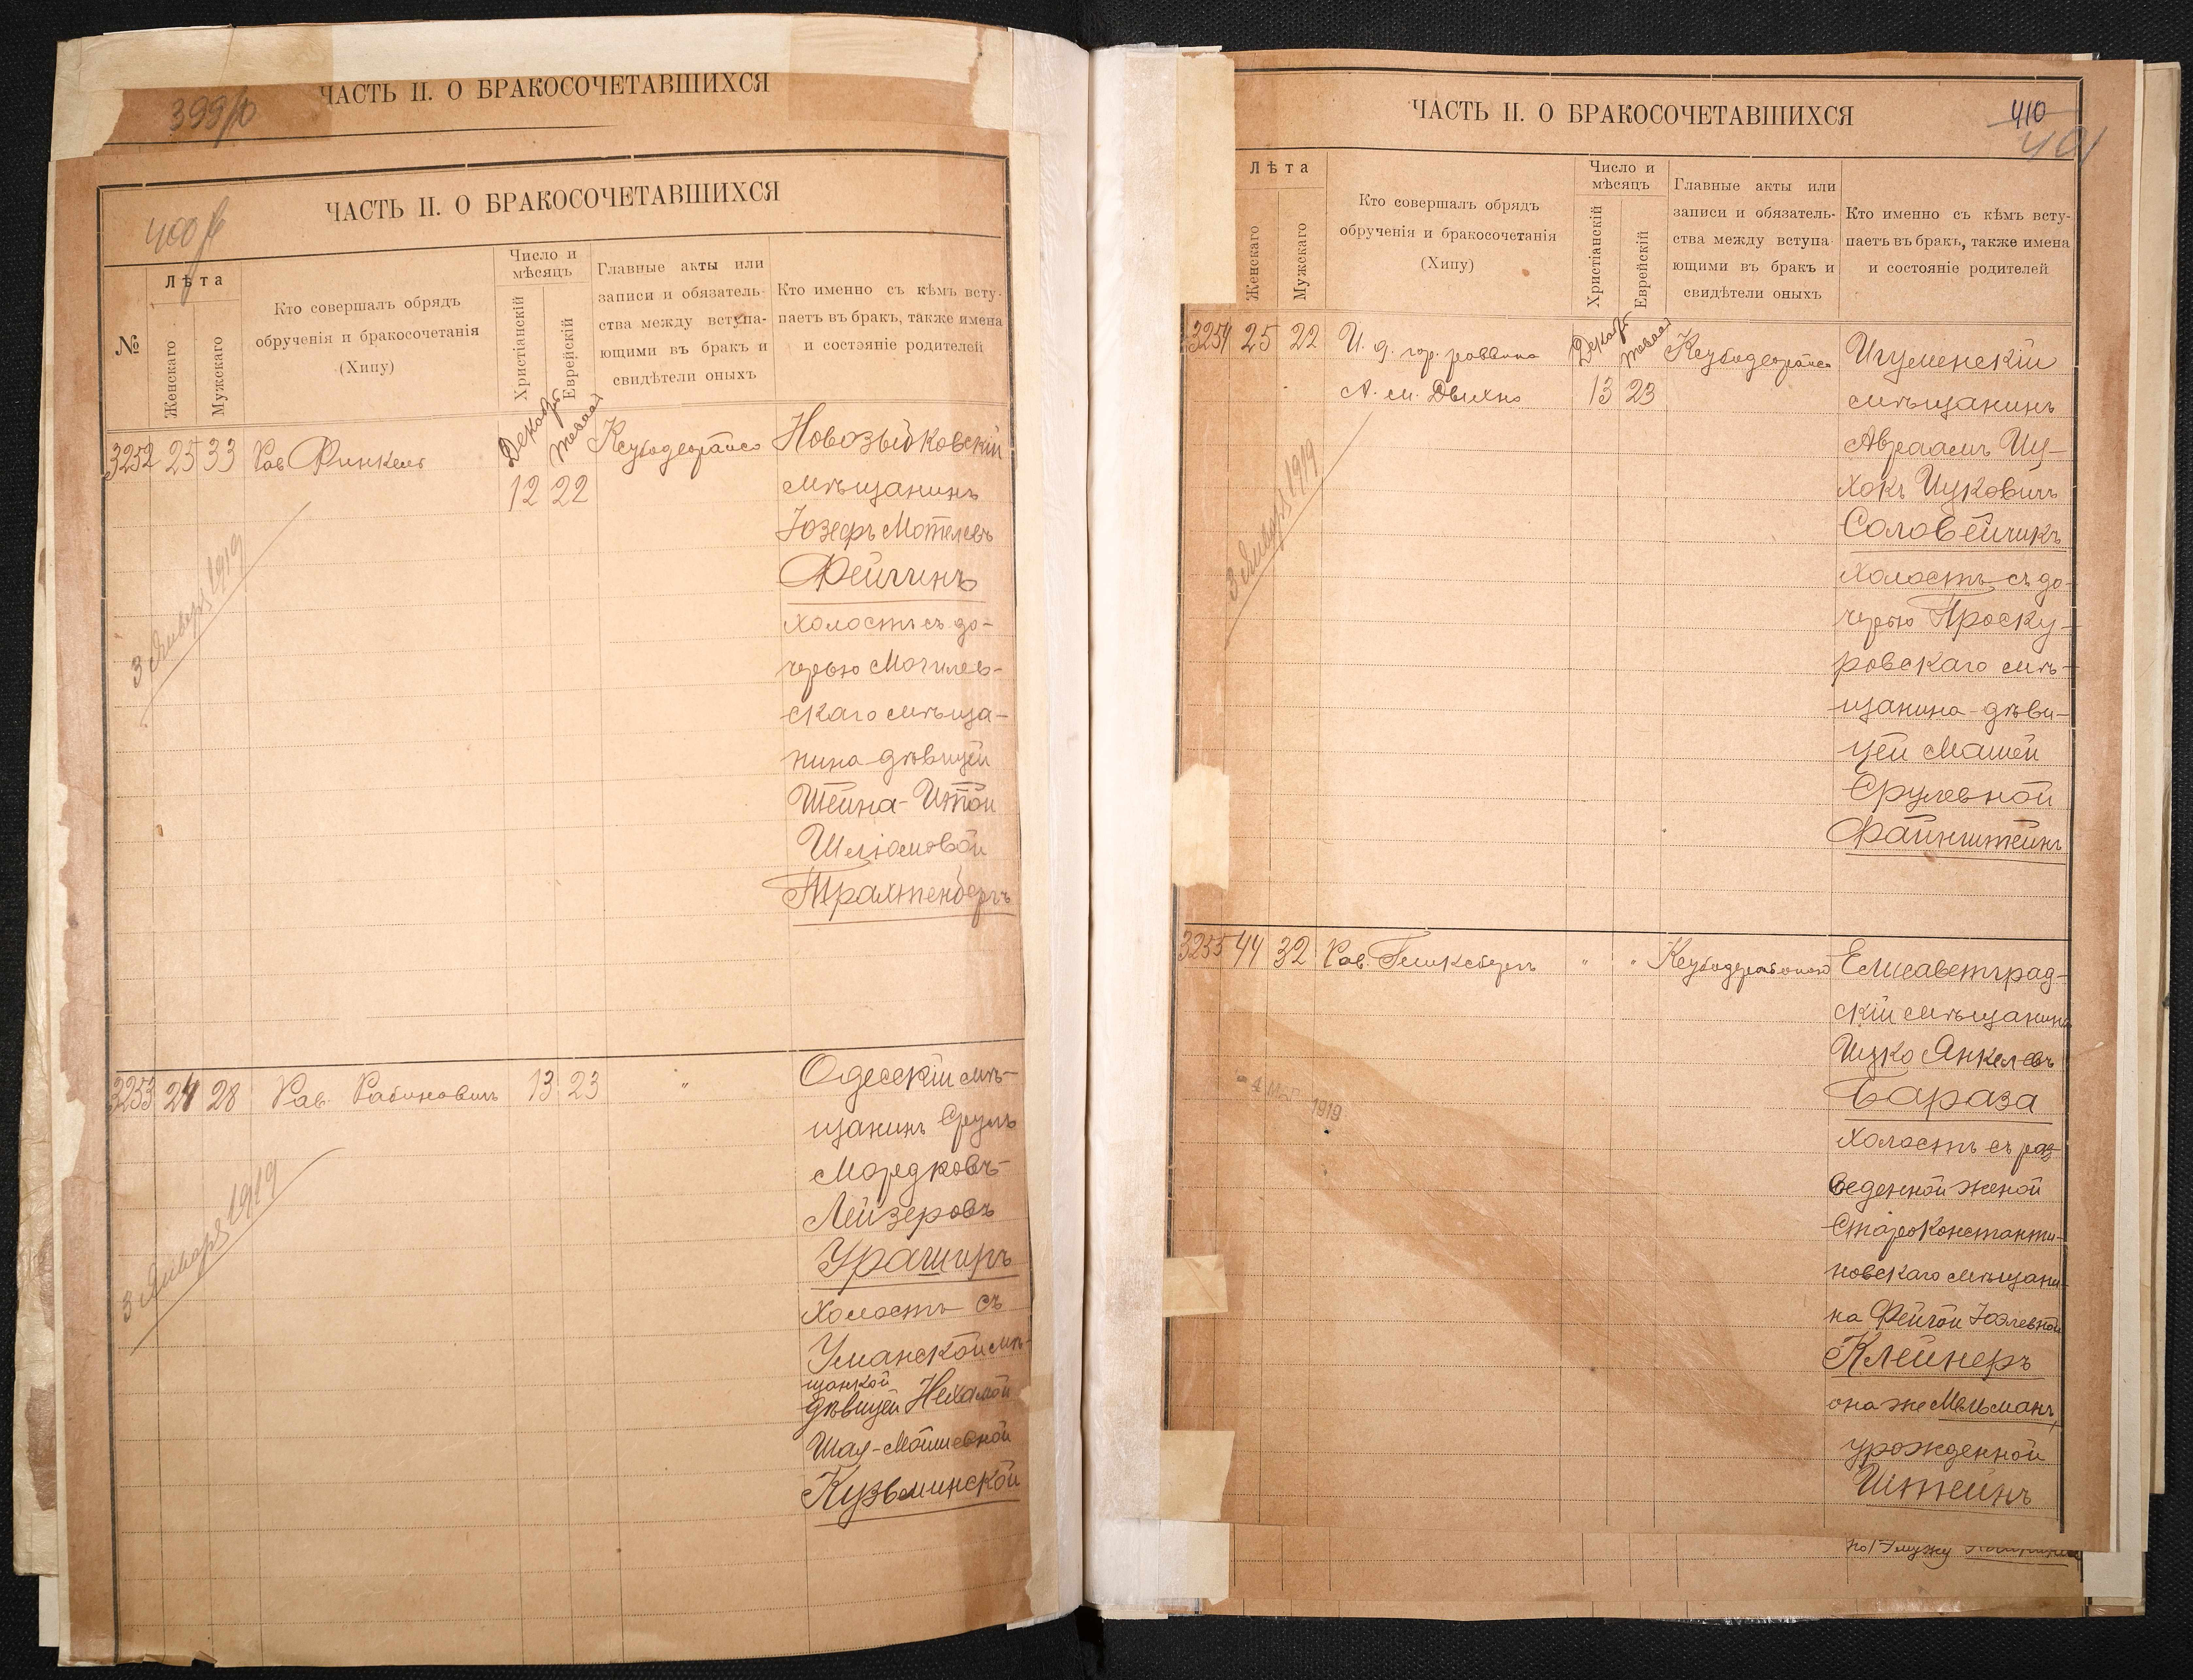 ЧАСТЬ II. О БРАКОСОЧЕТАВШИХСЯ
ЧАСТЬ II. О БРАКОСОЧЕТАВШИХСЯ
№
Лѣта
Женскаго
Мужскаго
Кто совершалъ обрядъ
обрученія и бракосочетанія
(Хипу)
Число и
мѣсяцъ
Христіанскій
Еврейскій
Главные акты или
записи и обязатель-
ства между вступа-
ющими въ бракъ и
свидѣтели оныхъ
Кто именно съ кѣмъ всту-
паетъ въ бракъ, также имена
и состояніе родителей
3252 25 33 Рав Финкель
12 22
Новозыбковскій
мѣщанинъ
Іозефъ Мотелевъ
Фейгинъ
холостъ съ до-
черью Могилев-
скаго мѣща-
нина дѣвицей
Шейна-Итой
Шліомовой
Трахтенбергъ
3 Января 1919
3253 24 28 Рав. Рабиновичъ 13 23 "
Одесскій мѣ-
щанинъ Сруль
Мордковъ-
Лейзеровъ
Ураширъ
Холостъ съ
Уманской мѣ-
щанкой
дѣвицей Нехамой
Шая-Мойшевной
Кузьминской
3 Января 1919
ЧАСТЬ II. О БРАКОСОЧЕТАВШИХСЯ
410
401
Лѣта
Женскаго
Мужскаго
Кто совершалъ обрядъ
обрученія и бракосочетанія
(Хипу)
Число и
мѣсяцъ
Христіанскій
Еврейскій
Главные акты или
записи и обязатель-
ства между вступа-
ющими въ бракъ и
свидѣтели оныхъ
Кто именно съ кѣмъ всту-
паетъ въ бракъ, также имена
и состояніе родителей
3254 25 22 И. д. гор. раввина
А. м. 13 23
Игуменскій
мѣщанинъ
Авраамъ Иц-
хокъ Ицковичъ
Соловейчикъ
холостъ съ до-
черью Проску-
ровскаго мѣ-
щанина дѣви-
цей Машей
Срулевной
Файнштейнъ
3 Января 1919
3255 44 32 Рав. " "
Елисаветград-
скій мѣщанинъ
Ицко Янкелевъ
Бараза
Холостъ съ раз
веденной женой
Староконстанти-
новскаго мѣщани-
на Фейгой Юэлевной
Клейнеръ
она же Мельманъ,
урожденной
Штейнъ
- 4 МАР 1919
по 1му мужу